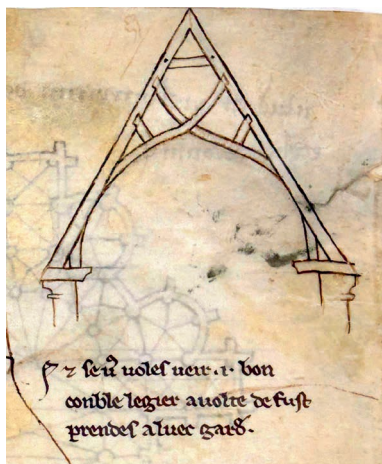 ⁊ se vͦ voles veir .i. bon
conble legier a volte de fust
prendes aluec gard̛.